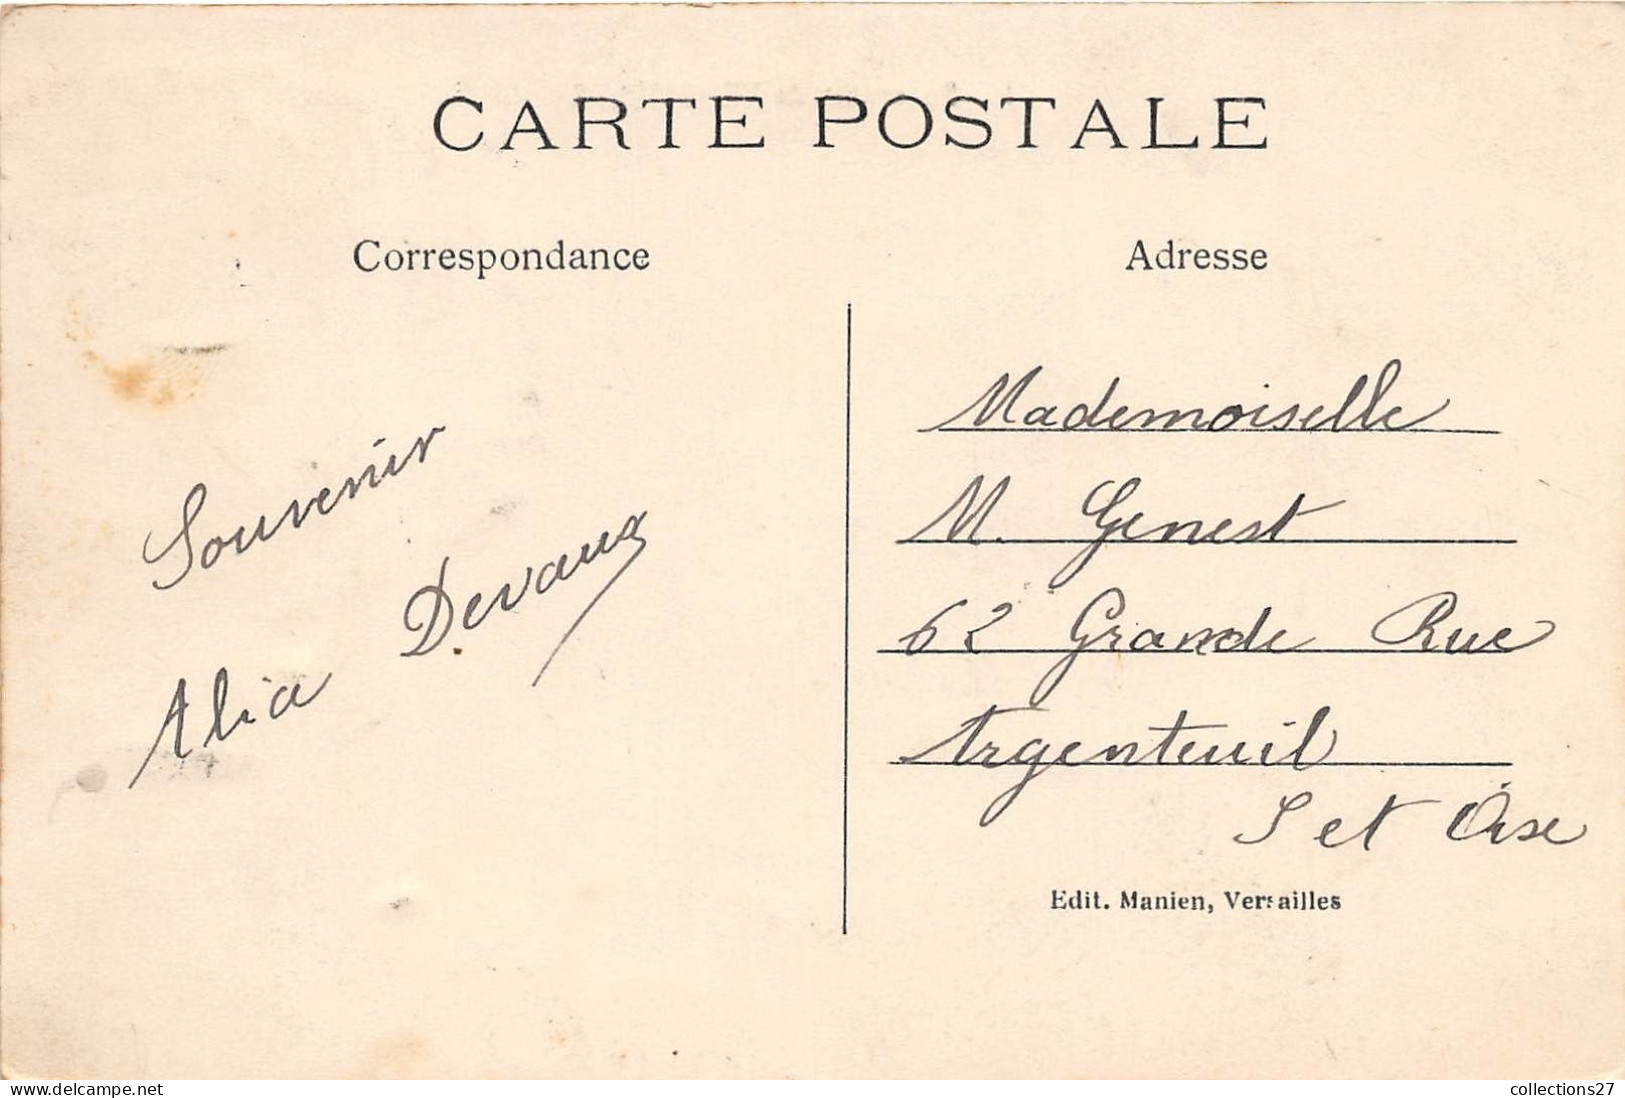 CARTE POSTALE
Correspondance
Souvenir
Alia Devaux
Adresse
Mademoiselle
M. Genest
62 Grande Rue
Argenteuil
S et Oise
Edit. Manien, Versailles
www.delcampe.net
collections27